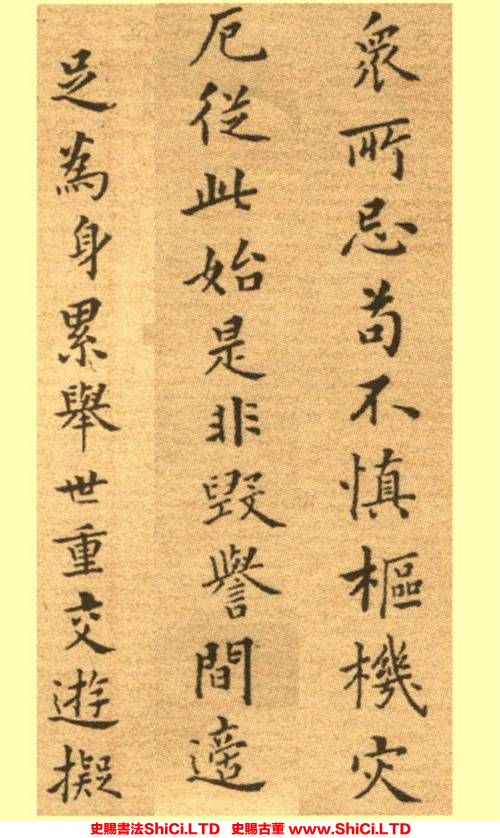 眾所忌苟不慎樞機灾
厄從此始是非毀譽間
適足為身累舉世重交遊擬
史賜書法ShiCi.LTD 史賜古董 www.ShiCi.LTD